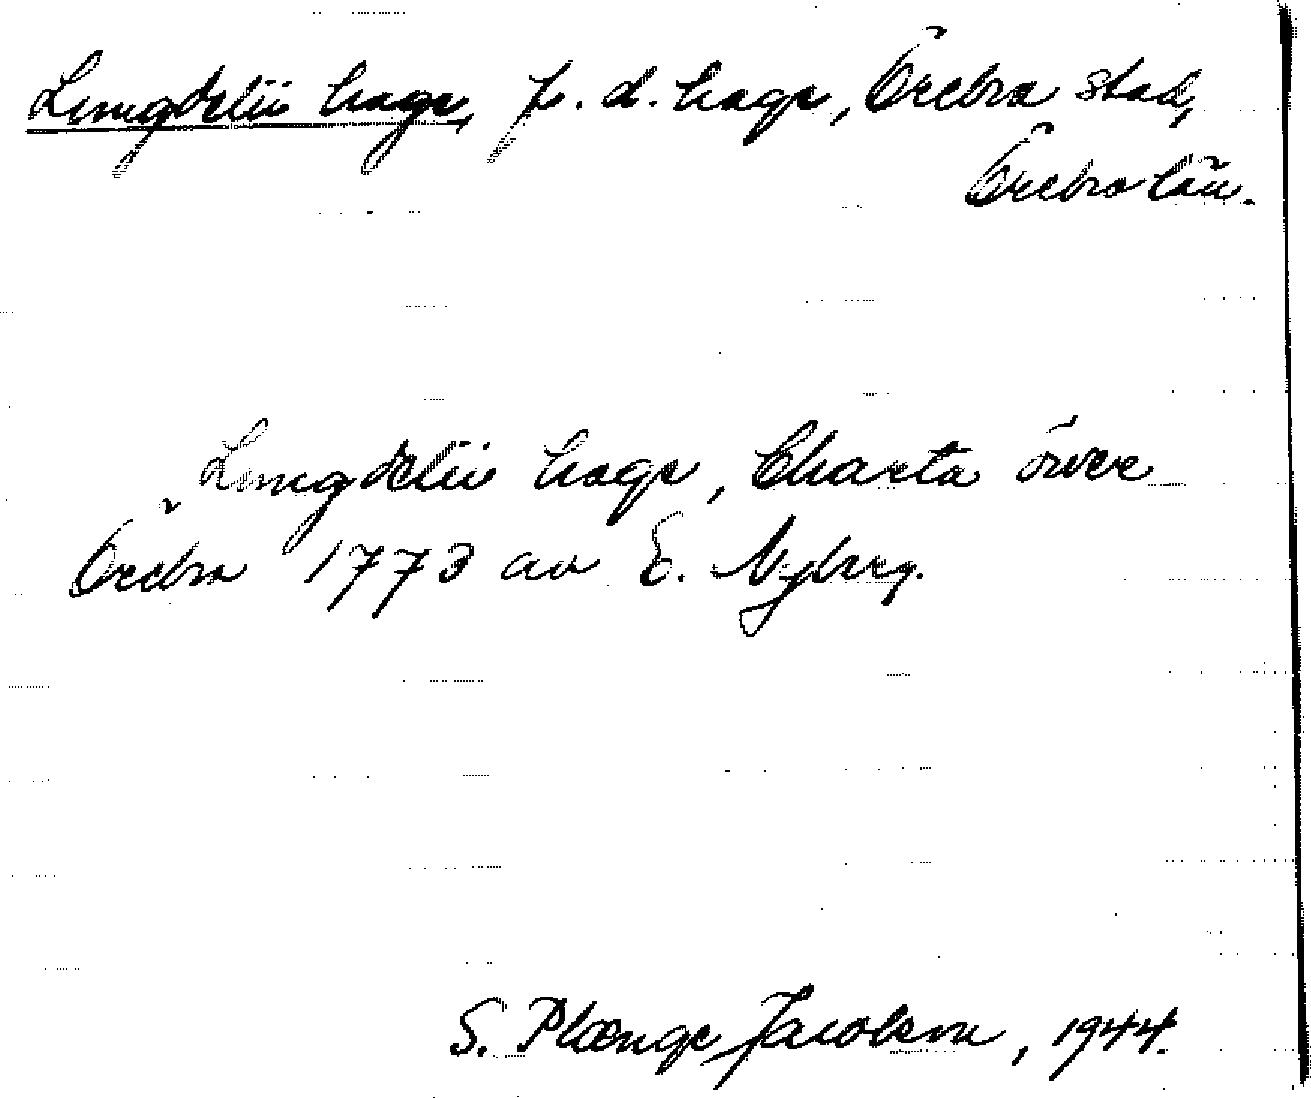 Ljungdelii hage, f. d. hage, Örebro stad,
Örebro län.
Ljungdelii hage, Charta öwer
Örebro 1773 av E. Nyberg.
S. Plænge Jacobson, 1944.